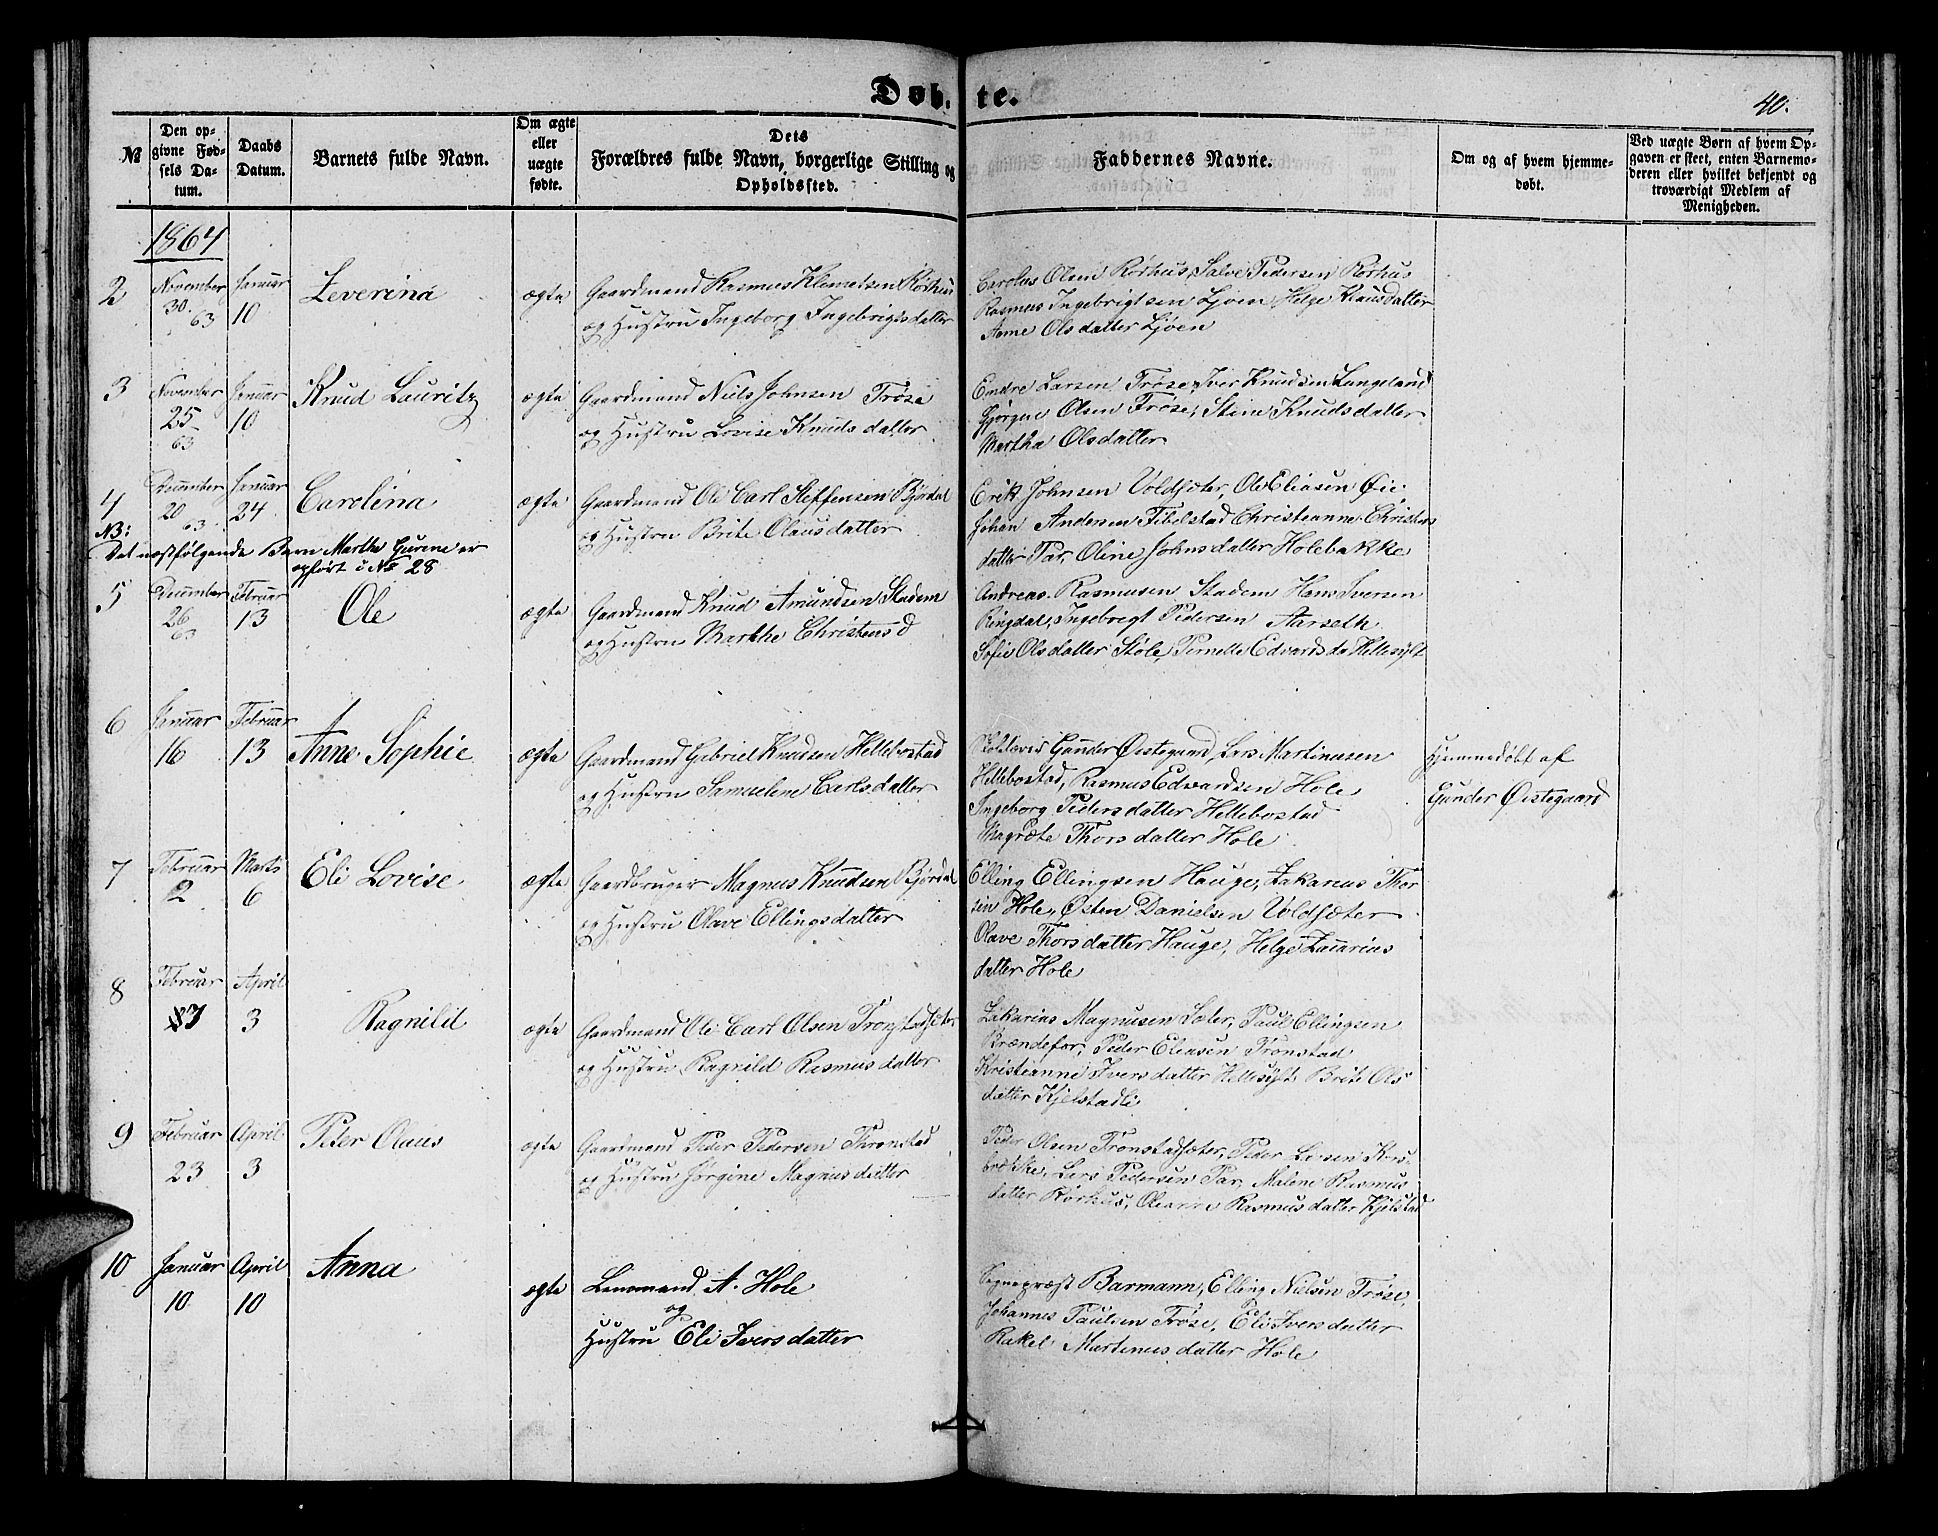 Døb-te.
40.
№
Den opgivne Fødsels Datum.
Daabs Datum.
Barnets fulde Navn.
Om ægte eller uægte fødte.
Dets Forældres fulde Navn, borgerlige Stilling og Opholdssted.
Faddernes Navne.
Om og af hvem hjemmedøbt.
Ved uægte Børn af hvem Opgaven er skeet, enten Barnemoderen eller hvilket bekjendt og troværdigt Medlem af Menigheden.
1864
2 November 30. 63 Januar 10 Zeverina ægte
Gaardmand Rasmus Klemetsen Rørhus
og Hustru Ingeborg Ingebrigtsdatter
Carolus Olsen Rørhus, Salve Pedersen Rørhus
Rasmus Ingebrigtsen Ljøen, Helge Klausdatter
Anne Olsdatter Ljøen
3 November 25 63 Januar 10 Knud Lauritz ægte
Gaardmand Niels Johnsen Trøse
og Hustru Lovise Knudsdatter
Endre Larsen Trøse, Iver Knudsen Langeland
Gjørgen Olsen Trøse, Stine Knudsdatter
Martha Olsdatter
4 December 20 63 Januar 24 Carolina ægte
Gaardmand Ole Carl Steffensen Bjørdal
og Hustru Brite Olausdatter
Erik Johnsen Voldsæter, Ole Eliasen Øie,
Johan Andersen Tibelstad Christianne Christens
datter Tar, Oline Johnsdatter Holebakke
NB:
Det næstfølgende Barn Marthe Gurine er
opført i No 28
5 December 26 63 Februar 13 Ole ægte
Gaardmand Knud Amundsen Stadem
og Hustru Marthe Christensd
Andreas Rasmusen Stadem Hans Iversen
Ringdal, Ingebrigt Pedersen Aarseth
Sofie Olsdatter Støle, Pernelle Edvardsda Hellesylt
6 Januar 16 Februar 13 Anne Sophie ægte
Gaardmand Gabriel Knudsen Hellebostad
og Hustru Samueline Carlsdatter
Gunder Østegaard, Lars Martinusen
Hellebostad, Rasmus Edvardsen Hole
Ingeborg Pedersdatter Hellebostad
Magrete Thorsdatter Hole
Hjemmedøbt af
Gunder Østegaard
7 Februar 2 Marts 6 Eli Lovise ægte
Gaardbruger Magnus Knudsen Bjørdal
og Hustru Olave Ellingsdatter
Elling Ellingsen Hauge, Zakarias Thor
sen Hole, Østen Danielsen Voldsæter
Olave Thorsdatter Hauge, Helge Zacarias
datter Hole
8 Februar April 3 Ragnild ægte
Gaardmand Ole Carl Olsen Tronstadsæter
og Hustru Ragnild Rasmusdatter
Zakarias Magnusen Sæter, Paul Ellingsen
Brændefor, Peder Eliasen Tronstad
Kristianne Iversdatter Hellesylt Brite Ols
datter Kjelstadli
9 Februar 23 April 3 Peter Olaus ægte
Gaardmand Peder Pedersen Thronstad
og Hustru Jørgine Magnusdatter
Peder Olsen Tronstadsæter, Peder Larsen Kors-
brække, Lars Pedersen Tar, Malene Rasmus
datter Rørhus, Oleanne Rasmusdatter Kjelstad
10 Januar 10 April 10 Anna ægte
Lensmand A. Hole
og
Hustru Eli Iversdatter
Sognepræst Barmann, Elling Nielsen Trøse,
Johannes Paulsen Trøse, Eli Iversdatter
Rakel Martinusdatter Hole